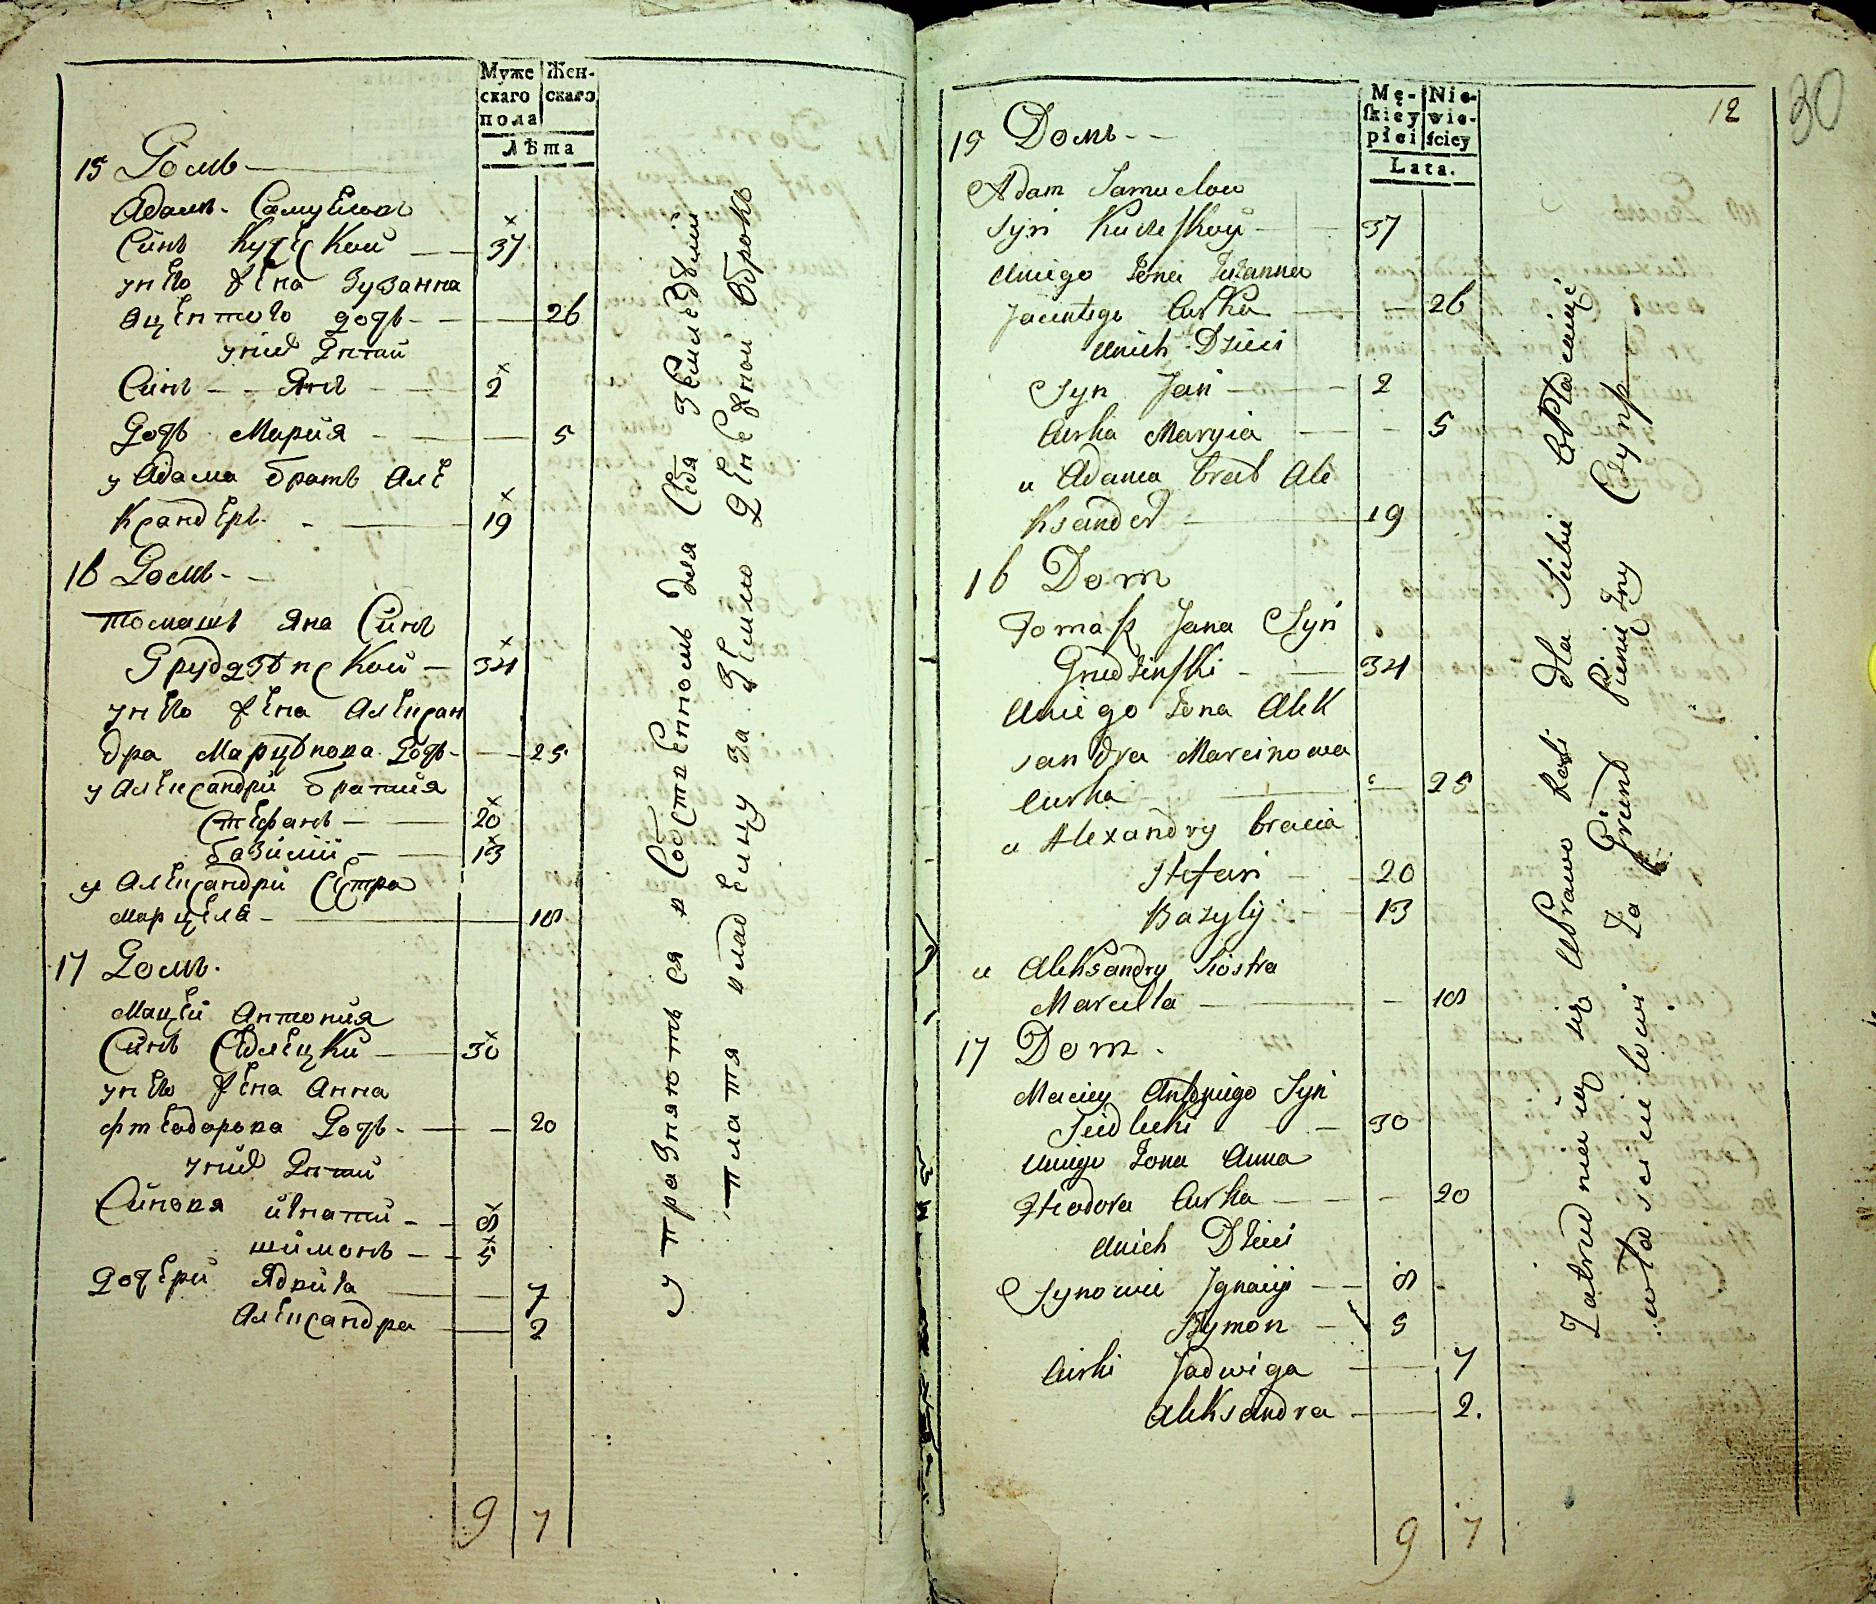 Муже Жен-
скаго скаго
пола
Лѣта
15 Домъ
Адамъ Самуеловъ
Синъ Куческои 37
унего жена Зузанна
Яцентого дочь 26
унихъ Дѣтии
Синъ Янъ 2
Дочь Мария 5
у Адама братъ Але
Ксандеръ 19
16 Домъ
Томашъ Яна Синъ
Грудзѣнскои 34
унего жена Алексан
дра Марцѣнова дочь 25
у Александри братия
Стефанъ 20
базилии 13
у Александри Сестра
Марцела 18
17 Домъ
Мацеи Антония
Синъ Седлецки 30
унего жена Анна
фтеодорова дочь 20
унихъ Дѣтии
Синовя игнатии 8
шимонъ 5
дочери Ядвига 7
Александра 2
9 7
упразняются в Собственность для Себя Земледѣлии
платя владелцу за Землю Денежнои Оброкъ
12
30
Mę- Nie-
ſkiey wie-
płci ſciey
Lata.
15 Домъ
Adam Samuelow
Syn Kucieskoy 37
Uniego Zona Zuzanna
Jacentego Curka 26
Unich Dzieci
Syn Jan 2
Curka Maryia 5
u Adama brat Ale
Ksander 19
16 Dom
Tomaſz Jana Syn
Grudzinſki 34
Uniego Zona Alek
sandra Marcinowa
Curka 25
u Alexandry bracia
Stefan 20
Bazyly 13
u Aleksandry Siostra
Marcella 18
17 Dom
Maciey Antoniego Syn
Siedlecki 30
Uniego Zona Anna
Fteodora Curka 20
Unich Dzieci
Synowie Jgnacy 8
Szymon 5
Curki Jadwiga 7
Aleksandra 2.
9 7
Zatrudniaią się Uprawo Roli dla Siebie Opłacaiąc
włascicielowi Za Grunt Pieniężny Czynsz